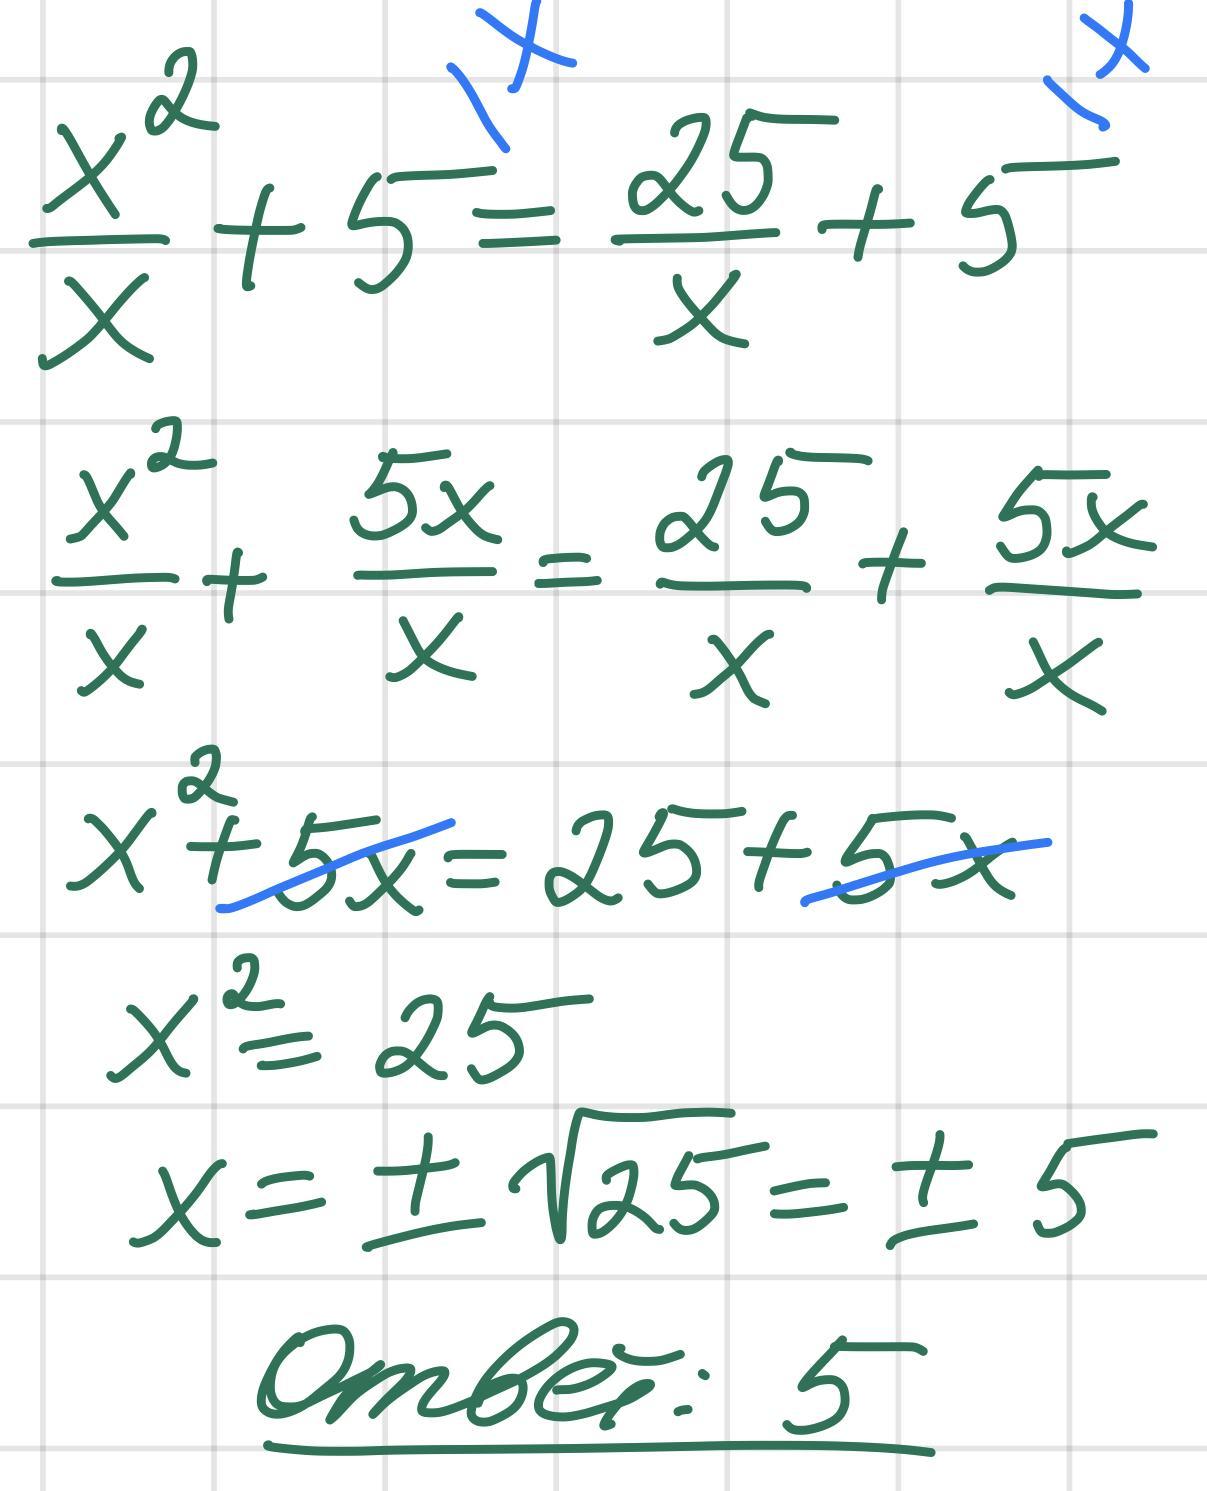 x²/x + 5\x = 25/x + 5\x
x²/x + 5x/x = 25/x + 5x/x
x² + 5x = 25 + 5x
x² = 25
x = ± √25 = ± 5
Ответ: 5